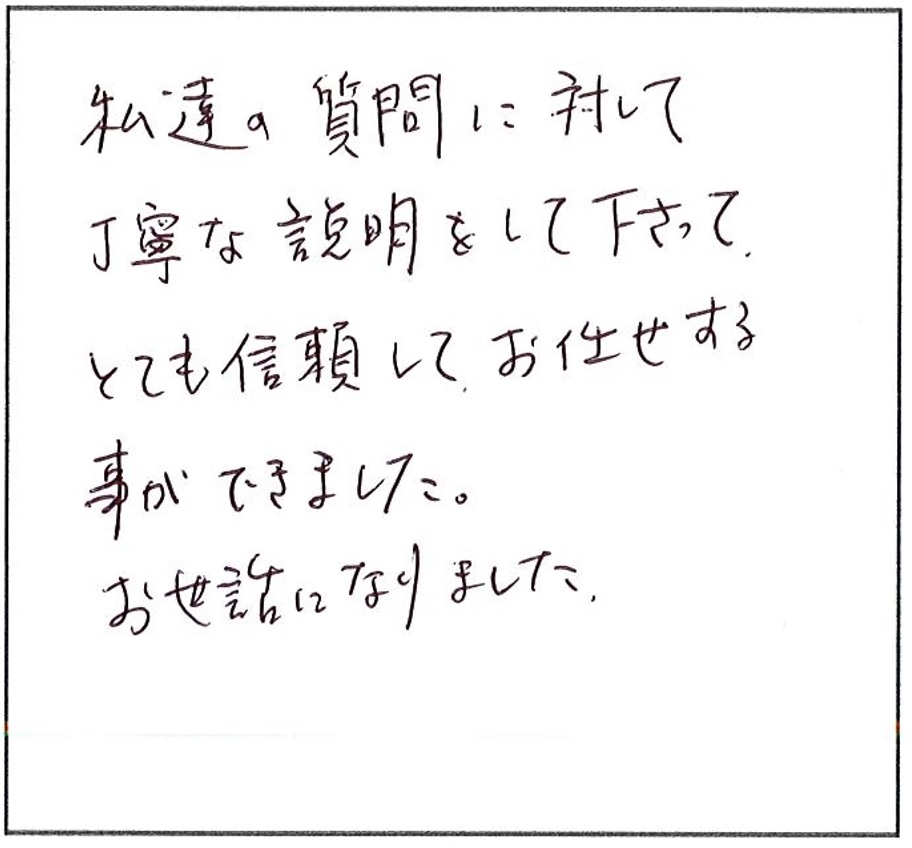 私達の質問に対して
丁寧な説明をして下さって、
とても信頼して、お任せする
事ができました。
お世話になりました。